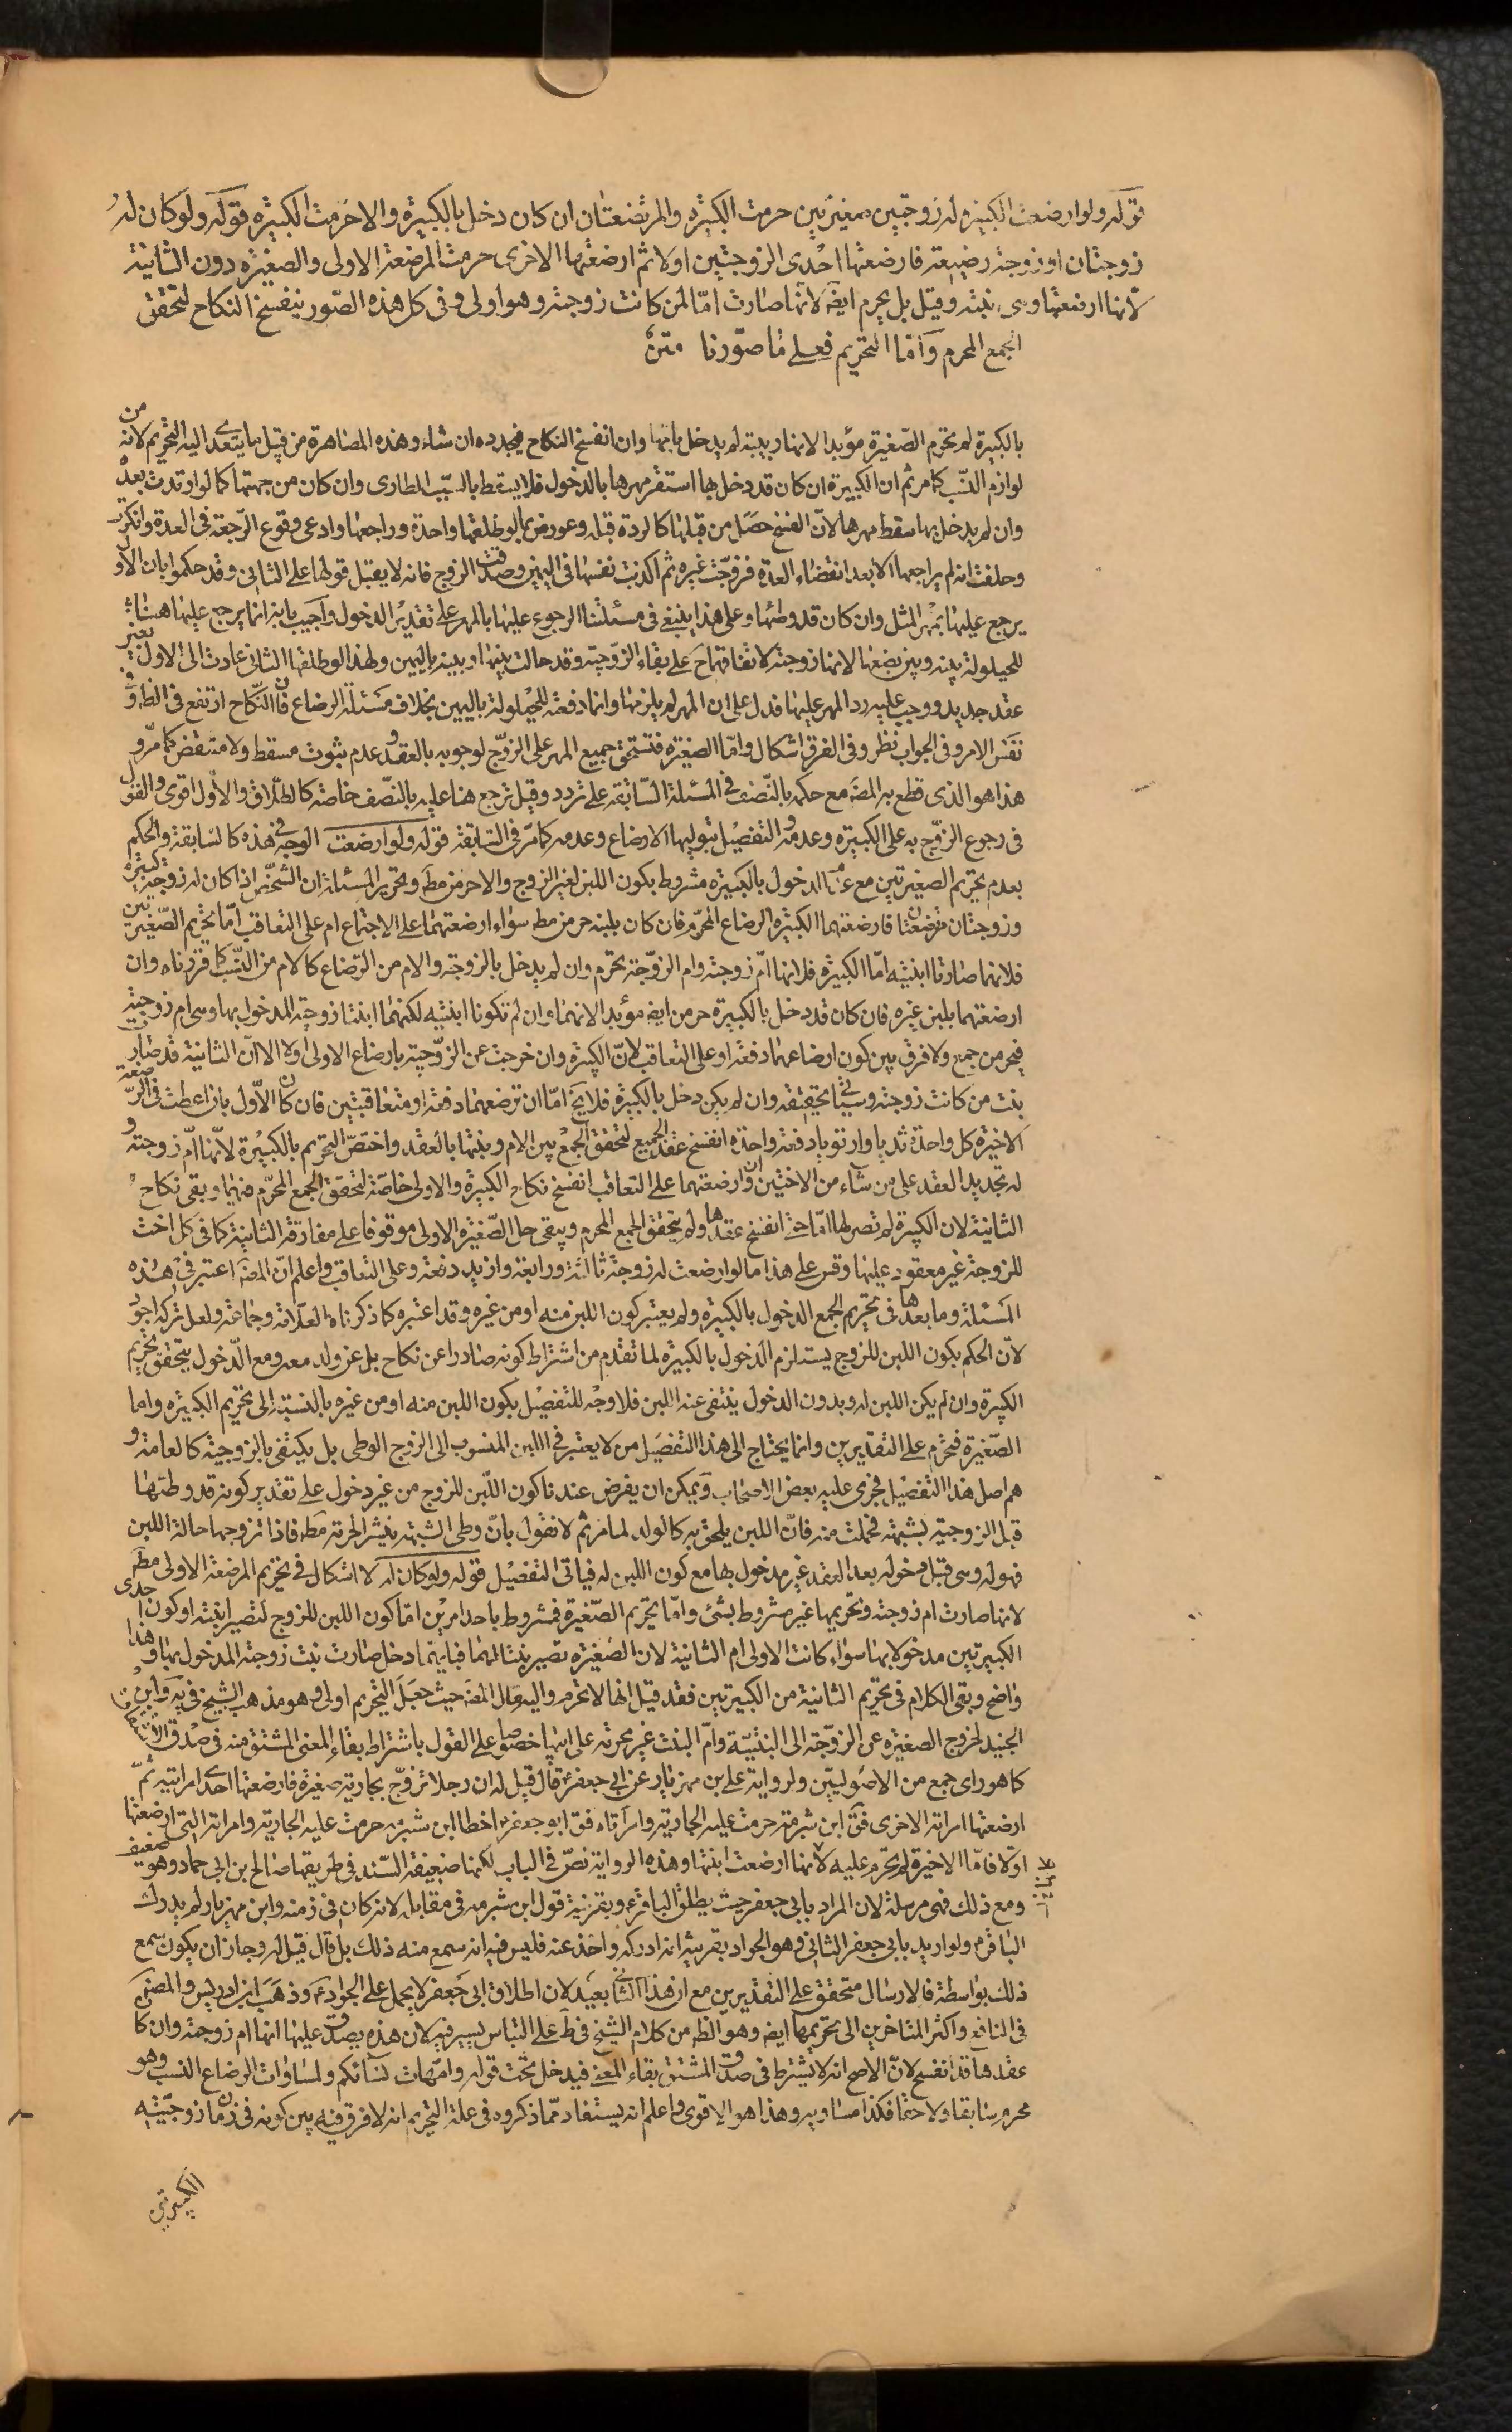 قوله ولو ارضعت الكبيرة له زوجتين صغيرتين حرمت الكبيرة والمرتضعتان ان كان دخل بالكبيرة والا حرمت الكبيرة قوله ولو كان له
زوجتان او زوجة رضيعة فارضعتها احدى الزوجتين اولا ثم ارضعتها الاخرى حرمت المرضعة الاولى والصغيرة دون الثانية
لانها ارضعتها وهى بنته وقيل بل يحرم ايضا لانها صارت امّا لمن كانت زوجته وهو اولى وفى كل هذه الصّور ينفسخ النكاح لتحقق
الجمع المحرم وامّا التحريم فعلى ما صوّرنا متن
بالكبيرة لم تحرم الصّغيرة مؤبدا لانها ربيبة لم يدخل بامّها وان انفسخ النكاح فيجدده ان شاء وهذه المصاهرة من قبيل ما يتعدى اليه التحريم لانه من
لوازم النسب كما مر ثم ان الكبيرة ان كان قد دخل بها استقر مهرها بالدخول فلا يسقط بالسبب الطارى وان كان من جهتها كما لو ارتدت بعده
وان لم يدخل بها سقط مهرها لانّ الفسخ حصل من قبلها كالردة قبله وعورض بما لو طلقها واحدة وراجعها وادعى وقوع الرّجعة فى العدة وانكرت
وحلفت انه لم يراجعها الا بعد انقضاء العدّة فزوّجت غيره ثم اكذبت نفسها فى اليمين وصدّقت الزوج فانه لا يقبل قولها على الثانى وقد حكموا بان الاول
يرجع عليها بمهر المثل وان كان قد وطئها وعلى هذا ينبغى فى مسئلتنا الرجوع عليها بالمهر على تقدير الدخول واجيب بانه انما يرجع عليها هناك
للحيلولة بينه وبين بضعها لانها زوجته لاتفاقهما ح على بقاء الزّوجيّة وقد حالت بينها وبينه باليمين ولهذا لو طلقها الثانى عادت الى الاول بغير
عقد جديد ووجب عليه رد المهر عليها فدل على ان المهر لم يلزمها وانما دفعته للحيلولة باليمين بخلاف مسئلة الرضاع فان النّكاح ارتفع فى الظاهر و
نفس الامر وفى الجواب نظر وفى الفرق اشكال وامّا الصغيرة فتستحق جميع المهر على الزوّج لوجوبه بالعقد وعدم ثبوت مسقط ولا منتقص كما مر و
هذا هو الذى قطع به المصَ مع حكمه بالنّصف فى المسئلة السّابقة على تردد وقيل ترجع هنا عليه بالنصّف خاصّة كالطلاق والاول اقوى والقول
فى رجوع الزوّج به على الكبيرة وعدمه والتفصيل بتوليها الارضاع وعدمه كما مرّ فى السّابقة قوله ولو ارضعت الوجه فى هذه كالسّابقة والحكم
بعدم تحريم الصغيرتين مع عدم الدخول بالكبيرة مشروط بكون اللبن لغير الزوج والا حرمن مطَ وتحرير المسئلة ان الشخص اذا كان له زوجة كبيرة
وزوجتان رضيعتان فارضعتهما الكبيرة الرضاع المحّرم فان كان بلبنه حرمن مط سواء ارضعتهما على الاجتماع ام على التعاقب امّا تحريم الصّغيرتين
فلانهما صارتا ابنتيه امّا الكبيرة فلانها امّ زوجته وام الزوّجة تحرم وان لم يدخل بالزوجة والام من الرّضاع كالام من النسب كما قررناه وان
ارضعتهما بلبن غيره فان كان قد دخل بالكبيرة حرمن ايضا مؤبدا لانهما وان لم تكونا ابنتيه لكنهما ابنتا زوجته المدخول بها وهى ام زوجتيه
فيحرمن جمع ولا فرق بين كون ارضاعهما دفعة او على التعاقب لانّ الكبيرة وان خرجت عن الزوّجيّة بارضاع الاولى اولا الا انّ الثانية قد صارت
بنت من كانت زوجته وسيأتى تحقيقه وان لم يكن دخل بالكبيرة فلا يخ امّا ان ترضعهما دفعة او متعاقبتين فان كان الاّول بان اعطت فى الرّضعة
الاخيرة كل واحدة ثديا وارتويا دفعة واحدة انفسخ عقد الجميع لتحقق الجمع بين الام وبنتها بالعقد واختصّ التحريم بالكبيرة لانّها امّ زوجته و
له تجديد العقد على من شاء من الاختين وان ارضعتهما على التعاقب انفسخ نكاح الكبيرة والاولى خاصّة لتحقق الجمع المحرّم فيهما وبقى نكاح
الثانية لان الكبيرة لم تصر لها امّا حتى انفسخ عقدها ولم يتحقق الجمع المحرم ويبقى حل الصّغيرة الاولى موقوفا على مفارقة الثانية كما فى كل اخت
للزوجة غير معقود عليها وقس على هذا ما لو ارضعت له زوجة ثالثة ورابعة وازيد دفعة وعلى التعاقب واعلم انّ المصَ اعتبر فى هذه
المسئلة وما بعدها فى تحريم الجمع الدخول بالكبيرة ولم يعتبر كون اللبن منه او من غيره وقد اعتبره كما ذكرناه العلاّمة وجماعة ولعل تركه اجود
لانّ الحكم بكون اللبن للزوج يستلزم الدّخول بالكبيرة لما تقدم من اشتراط كونه صادرا عن نكاح بل عن ولد معه ومع الدّخول يتحقق تحريم
الكبيرة وان لم يكن اللبن له وبدون الدخول ينتفى عنه اللبن فلا وجه للتفصيل بكون اللبن منه او من غيره بالنسبة الى تحريم الكبيرة واما
الصّغيرة فتحرم على التقديرين وانما يحتاج الى هذا التفصيل من لا يعتبر فى اللبن المنسوب الى الزوج الوطى بل يكتفى بالزوجية كالعامة و
هم اصل هذا التفصيل فجرى عليه بعض الاصحاب ويمكن ان يفرض عندنا كون اللّبن للزوج من غير دخول على تقدير كونه قد وطئها
قبل الزوجية بشبهة فحملت منه فانّ اللبن يلحق به كالولد لما مر ثم لا نقول بانّ وطى الشبهة ينشر الحرمة مطَ فاذا تزوجها حالة اللبن
فهو له وهى قبل دخوله بعد العقد غير مدخول بها مع كون اللبن له فياتى التفصيل قوله ولو كان له لا اشكال فى تحريم المرضعة الاولى مط
لانها صارت ام زوجته وتحريمها غير مشروط بشئ وامّا تحريم الصّغيرة فمشروط باحد امرين امّا كون اللبن للزوج لتصير ابنته او كون احدى
الكبيرتين مدخولا بها سواء كانت الاولى ام الثانية لان الصغيرة تصير بنتا لهما فبايهّما دخل صارت بنت زوجته المدخول بها وهذا
واضح وبقى الكلام فى تحريم الثانية من الكبيرتين فقد قيل انها لا تحرم واليه مال المصَ حيث جعل التحريم اولى وهو مذهب الشيخ فى يه وابن
الجنيد لخروج الصغيرة عن الزوّجية الى البنتيّة وامّ البنت غير محرمة على ابيها خصوصا على القول باشتراط بقاء المعنى المشتق منه فى صدق الاشتقاق
كما هو راى جمع من الاصوليّين ولرواية على بن مهزيار عن ابى جعفر ع قال قيل له ان رجلا تزوّج بجارية صغيرة فارضعتها احدى امراتيه ثمّ
ارضعتها امراته الاخرى فق ابن شبرمة حرمت عليه الجارية وامرأتاه فق ابو جعفر ع اخطا ابن شبرمه حرمت عليه الجارية وامراته التى ارضعتها
اوّلا فامّا الاخيرة لم تحرم عليه لانها ارضعت ابنتها وهذه الرواية نصّ فى الباب لكنها ضعيفة السّند فى طريقها صالح بن ابى حماد وهو ضعيف
ومع ذلك فهى مرسلة لان المراد بابى جعفر حيث يطلق الباقر ع وبقرينة قول ابن شبرمه فى مقابله لانه كان فى زمنه وابن مهزيار لم يدرك
الباقر ع ولو اريد بابى جعفر الثانى وهو الجواد بقرينة انه ادركه واخذ عنه فليس فيه انه سمع منه ذلك بل قال قيل له وجاز ان يكون سمع
ذلك بواسطة فالارسال متحقق على التقديرين مع ان هذا الثانى بعيد لان اطلاق ابى جعفر لا يحمل على الجواد ع وذهب ابن ادريس والمصَ
فى النافع واكثر المتاخرين الى تحريمها ايضا وهو الظ من كلام الشيخ فى ط على التباس يسير فيه لان هذه يصدق عليها انها ام زوجته وان كان
عقدها قد انفسخ لانّ الاصح انه لا يشترط فى صدق المشتق بقاء المعنى فيدخل تحت قوله وامّهات نسائكم ولمساوات الرضاع النسب وهو
محرم سابقا ولاحقا فكذا مساويه وهذا هو الاقوى واعلم انه يستفاد ممّا ذكروه فى علة التحريم انه لا فرق فيه بين كونه فى زمان زوجيّته
الكبيرتين